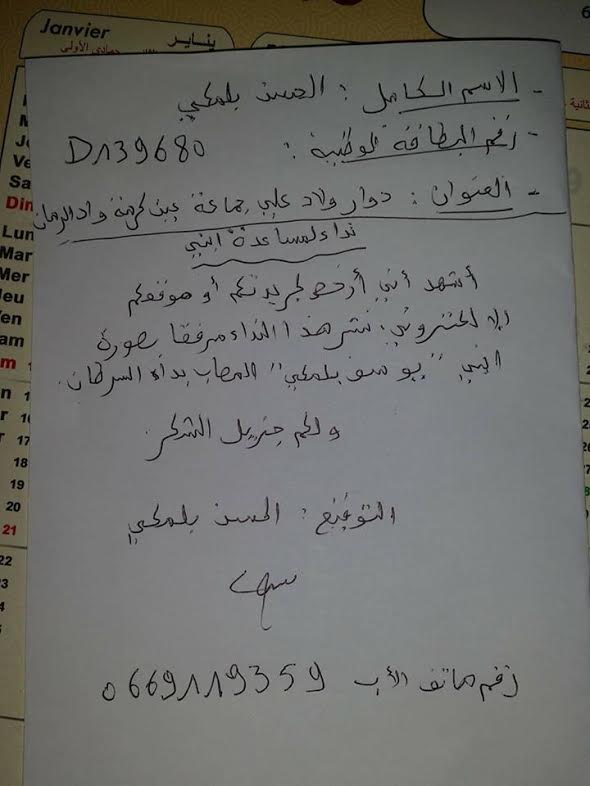 Janvier يناير
جمادى الأولى
- الاسم الكامل : الحسن بلمكي
- رقم البطاقة الوطنية : D139680
- العنوان : دوار ولاد علي جماعة عين كرمة واد الرمان
نداء لمساعدة ابني
أشهد أني أرخص لجريدتكم أو موقعكم
الإلكتروني، نشر هذا النداء مرفقا بصورة
ابني "يوسف بلمكي" المصاب بداء السرطان.
ولكم جزيل الشكر.
التوقيع : الحسن بلمكي
رقم هاتف الأب 0669119359
Dim
Lun
Mar
Mer
Jeu
Ven
Sam
16
17
18
19
20
21
22
23